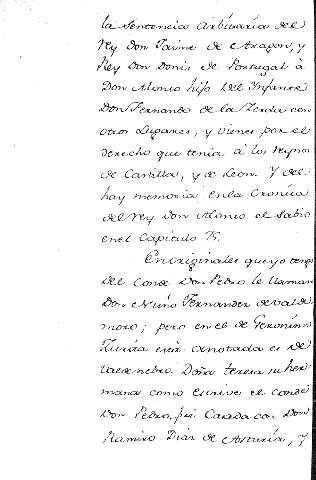 la sentencia arbitraria del
Rey Don Jaime de Aragon, y
Rey Don Donis de Portugal à
Don Alonso hijo del Infante
Don Fernando de la Zerda con
otros Lugares, y vienes por el
derecho que tenia à los Reynos
de Castilla, y de Leon. Y del
hay memoria en la Cronica
del Rey Don Alonso el Sabio
en el Capitulo 75.
En originales que yo tengo
del Conde Don Pedro le llaman
Don Nuño Fernandez de Val de
moro; pero en el de Geronimo
Zurita está anotada es de
Valdenebro. Doña teresa su her
mana como escrive el conde
Don Pedro, fué Casada con Don
Ramiro Diaz de Asturia, y